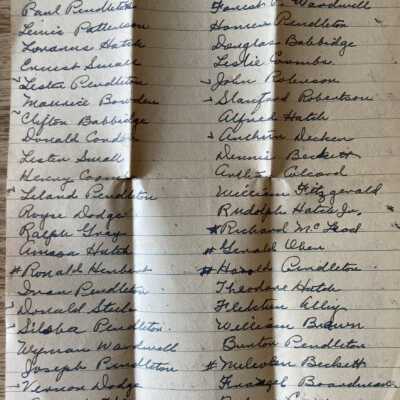 Paul Pendleton
Lewis Patterson
Lovanna Hatch
Ernest Small
Lester Pendleton
Maurice Bowden
Clifton Babbidge
Donald Condon
Lester Small
Henry
Leland Pendleton
Royse Dodge
Ralph Gray
Amasa Hatch
# Ronald Herbert
Ivan Pendleton
Donald Steele
Silsba Pendleton
Wyman Wardwell
Joseph Pendleton
Vernon Dodge
Forrest Wardwell
Homer Pendleton
Douglas Babbidge
Leslie Coombs
John Robinson
Stanford Robertson
Alfred Hatch
Decker
Dennis Beckett
William Fitzgerald
Rudolph Hatch Jr.
Richard McLeod
# Gerald Ober
# Harold Pendleton
Theodore Hatch
William Brown
Burton Pendleton
# Beckett
Boardman